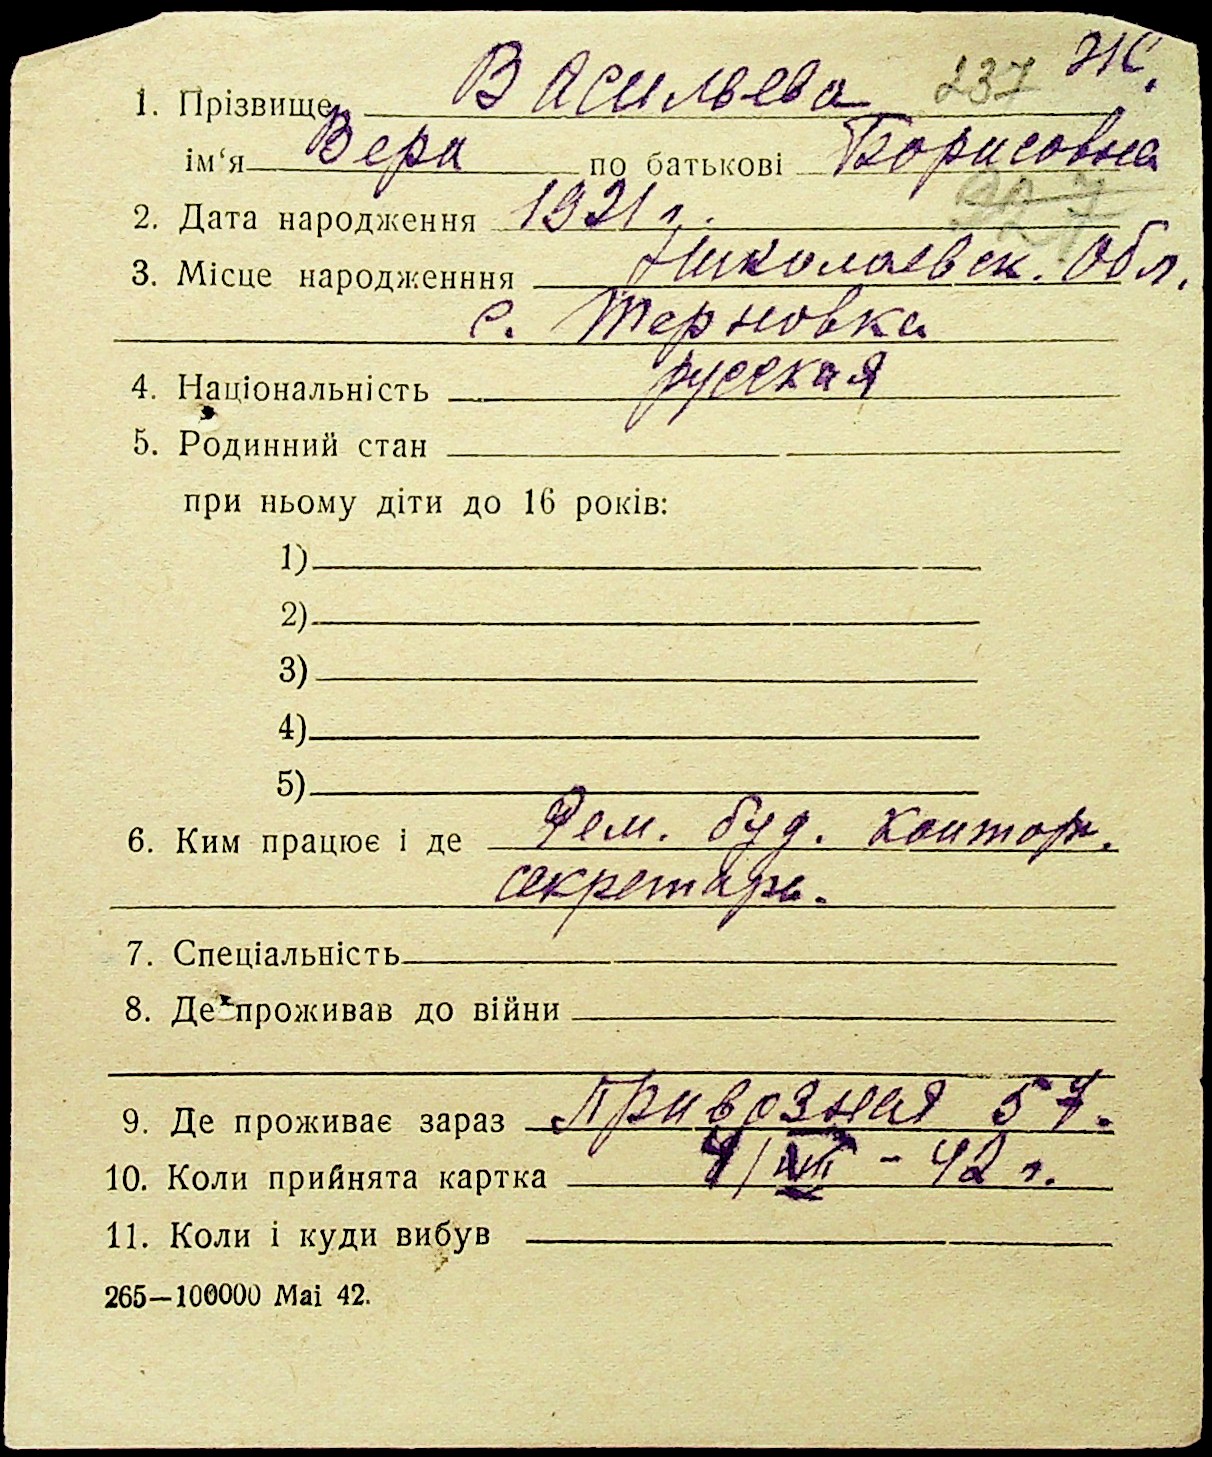 237 Ж.
1. Прізвище Васильева
ім‘я Вера по батькові Борисовна
2. Дата народження 1921 г.
3. Місце народженння Николаевск. Обл.
с. Терновка
4. Національність русская
5. Родинний стан
при ньому діти до 16 років:
1)
2)
3)
4)
5)
6. Ким працює і де Рем. буд. контор.
секретарь.
7. Спеціальність
8. Де проживав до війни
9. Де проживає зараз Привозная 57.
10. Коли прийнята картка - 42 г.
11. Коли і куди вибув
265—100000 Mai 42.